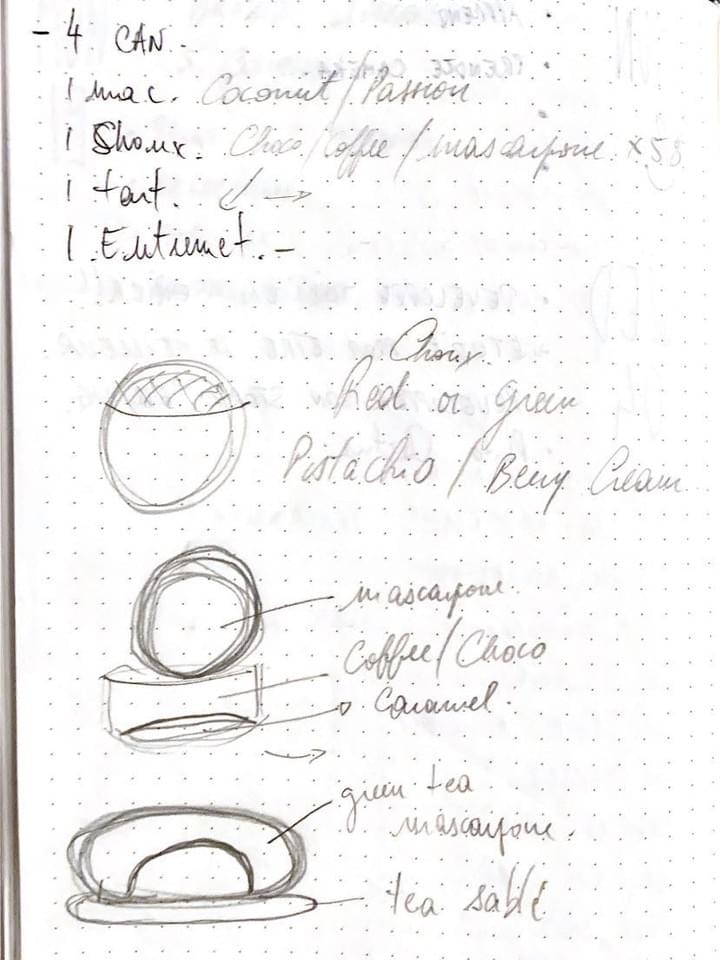 - 4 CAN.
1 mac. Coconut/Passion
1 Shoux. Choco/Coffee/mascarpone. x
1 tart.
1 Entremet. -
Choux.
Red or green
Pistachio / Berry Cream
mascarpone.
Coffee/Choco
Caramel.
green tea
mascarpone.
tea sablé